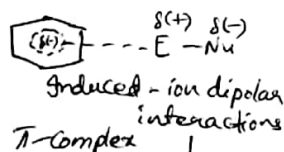 δ(+) δ(-)
(δ-) ----- E — Nu
Induced - ion dipolar
interactions
π-complex